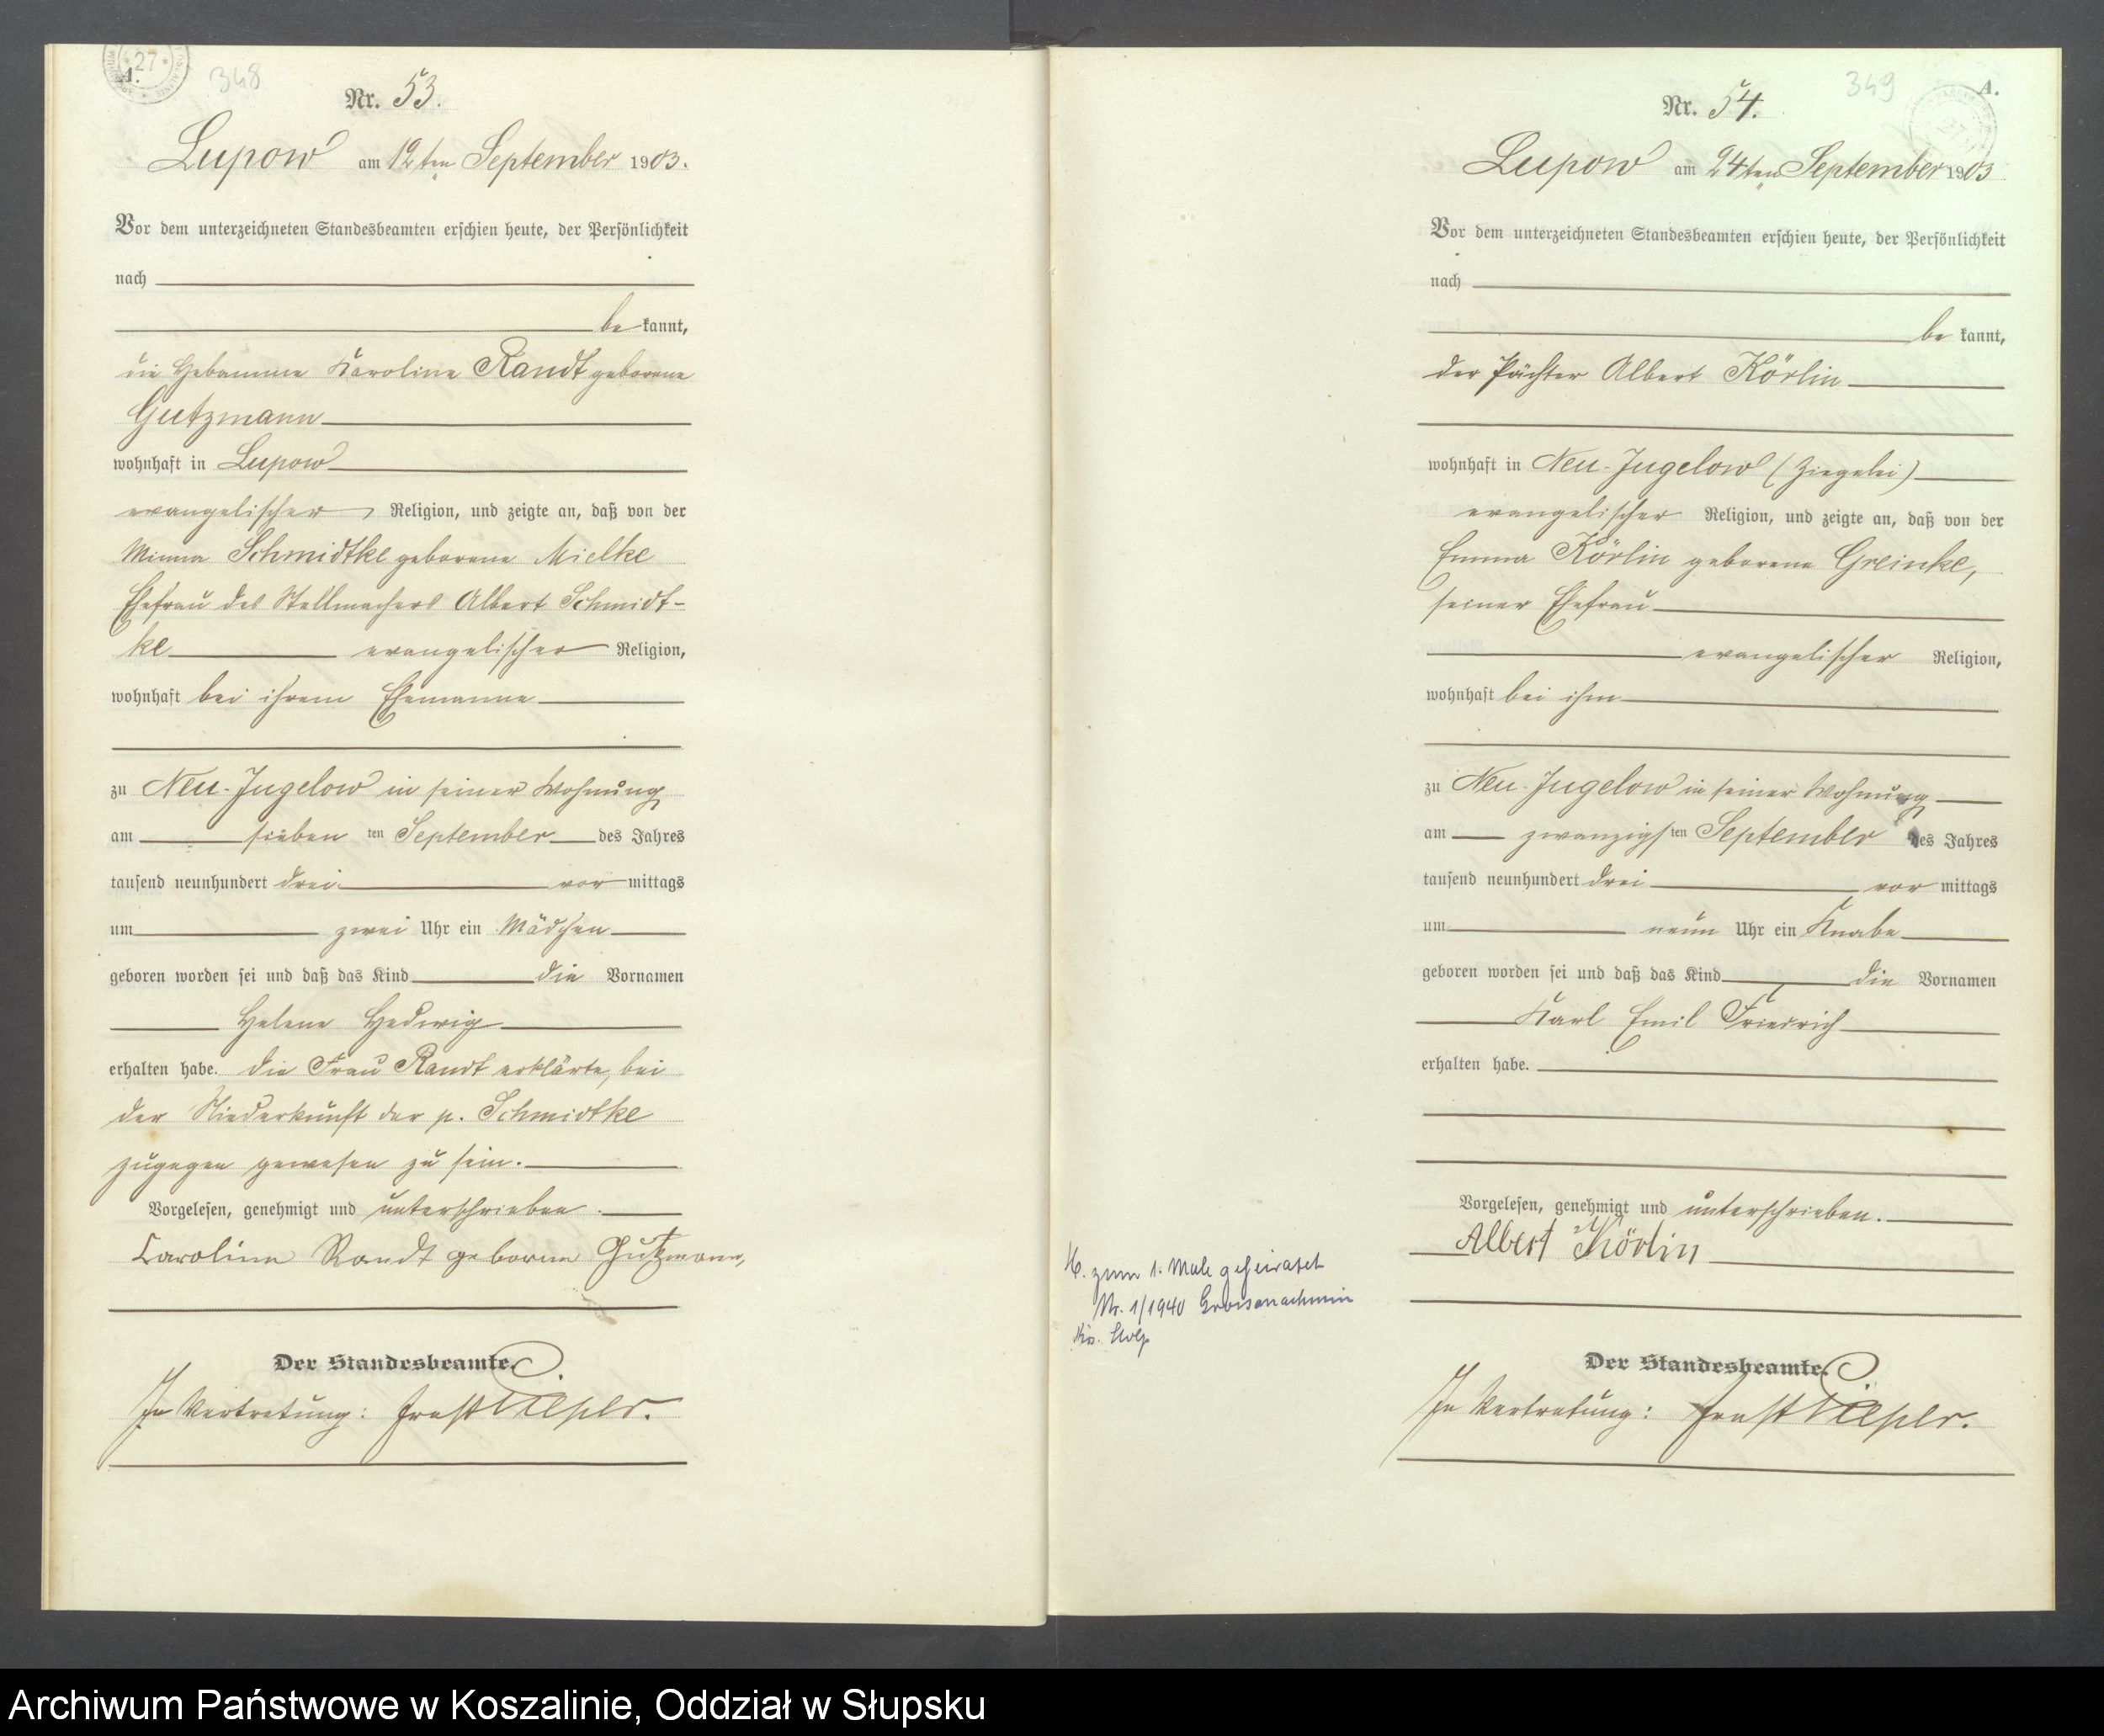 27
A.
348
Nr. 53.
Lupow am 12ten September 1903.
Vor dem unterzeichneten Standesbeamten erschien heute, der Persönlichkeit
nach
bekannt,
die Hebamme Karoline Randt geborene
Gutzmann
wohnhaft in Lupow
evangelischer Religion, und zeigte an, daß von der
Minna Schmidtke geborene Mielke
Ehefrau des Stellmachers Albert Schmidt-
ke evangelischer Religion,
wohnhaft bei ihrem Ehemanne
zu Neu-Jugelow in seiner Wohnung
am sieben ten September des Jahres
tausend neunhundert drei vor mittags
um zwei Uhr ein Mädchen
geboren worden sei und daß das Kind die Vornamen
Helene Hedwig
erhalten habe. Die Frau Randt erklärte, bei
der Niederkunft der p. Schmidtke
zugegen gewesen zu sein.
Vorgelesen, genehmigt und unterschrieben.
Caroline Randt geborne Gutzmann,
Der Standesbeamte.
In Vertretung: Ernst
349
A.
Nr. 54.
Lupow am 24ten September 1903
Vor dem unterzeichneten Standesbeamten erschien heute, der Persönlichkeit
nach
bekannt,
der Pächter Albert Körlin
wohnhaft in Neu-Jugelow (Ziegelei)
evangelischer Religion, und zeigte an, daß von der
Emma Körlin geborene Greinke,
seiner Ehefrau
evangelischer Religion,
wohnhaft bei ihm
zu Neu-Jugelow in seiner Wohnung
am zwanzigsten September des Jahres
tausend neunhundert drei vor mittags
um neun Uhr ein Knabe
geboren worden sei und daß das Kind die Vornamen
Karl Emil Friedrich
erhalten habe.
Vorgelesen, genehmigt und unterschrieben.
Albert Körlin
K. zum 1. Male geheiratet
Nr. 1/1940 Grossnachmin
Krs. Stolp
Der Standesbeamte.
In Vertretung: Ernst
Archiwum Państwowe w Koszalinie, Oddział w Słupsku